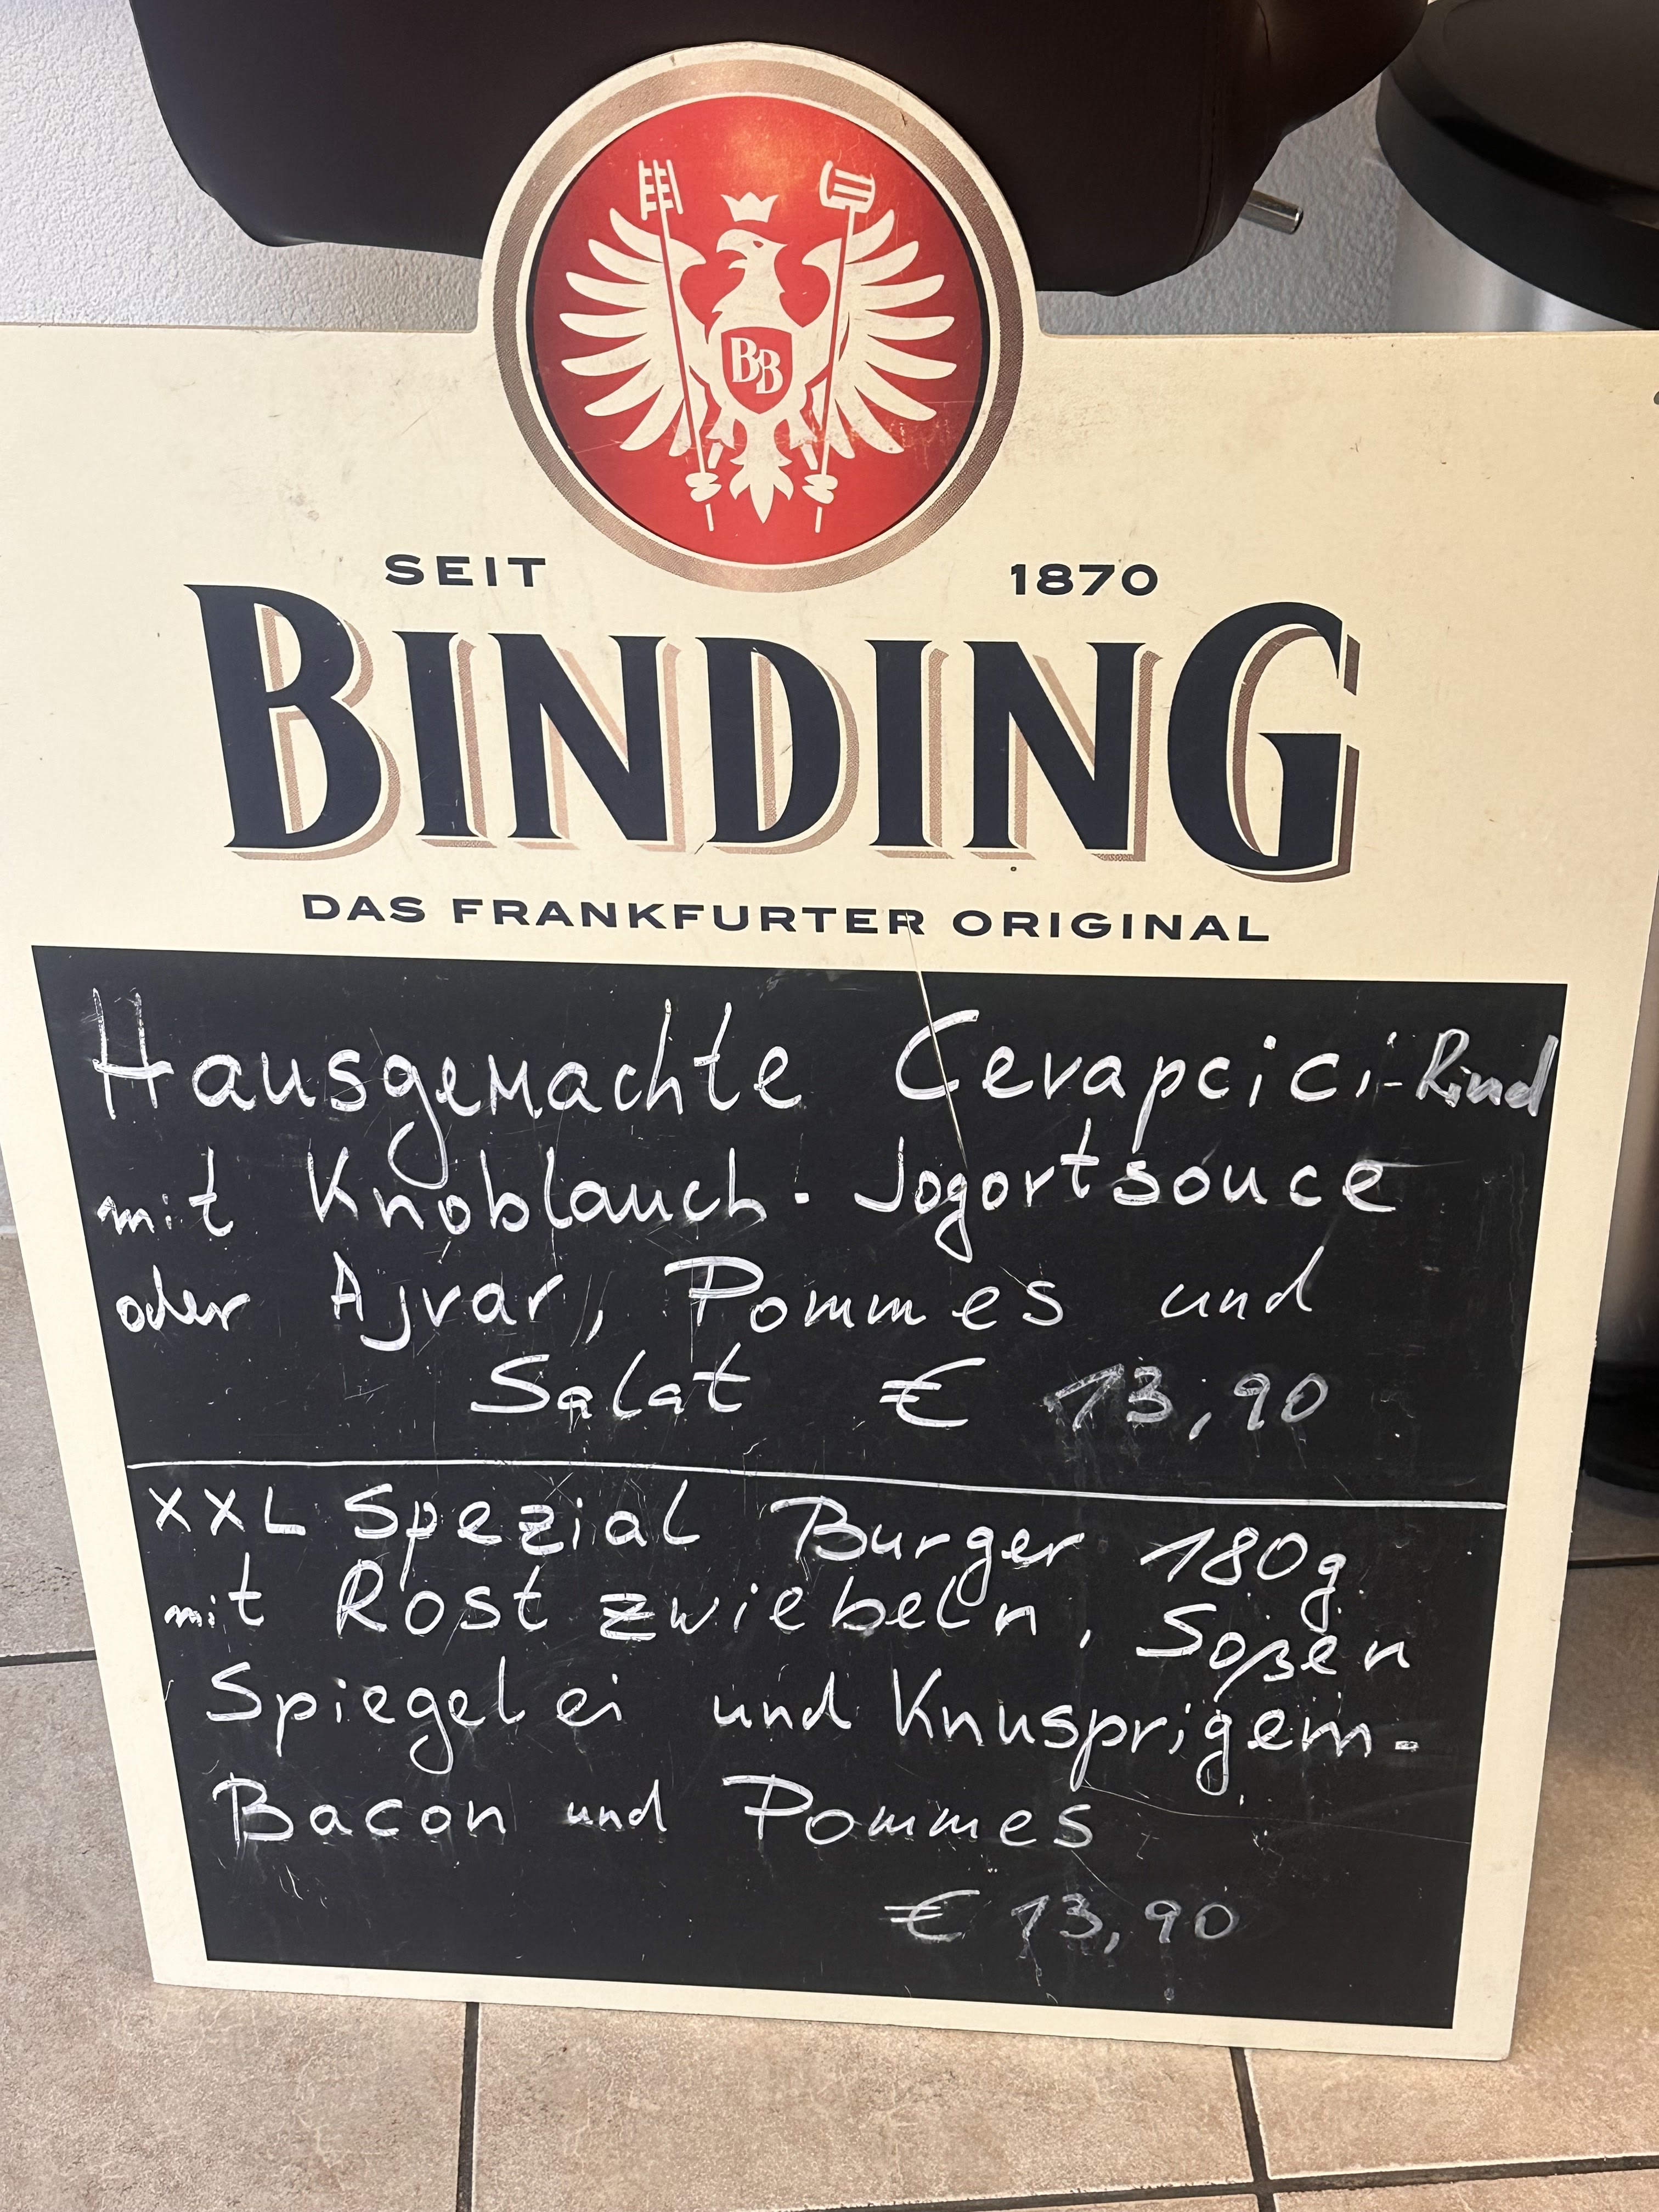 BB
SEIT 1870
BINDING
DAS FRANKFURTER ORIGINAL
Hausgemachte Cevapcici-Rind
mit Knoblauch-Jogortsouce
oder Ajvar, Pommes und
Salat € 13,90
XXL Spezial Burger 180g
mit Rost zwiebeln, Soßen
Spiegelei und Knusprigem-
Bacon und Pommes
€ 13,90